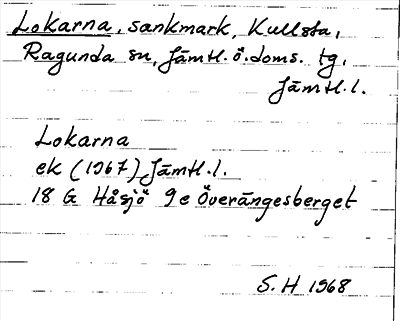 Lokarna, sankmark, Kullsta,
Ragunda sn, Jämtl. ö. doms. tg,
Jämtl. l.
Lokarna
ek (1967) Jämtl. l.
18 G Håsjö 9e Överängesberget
S. H 1968